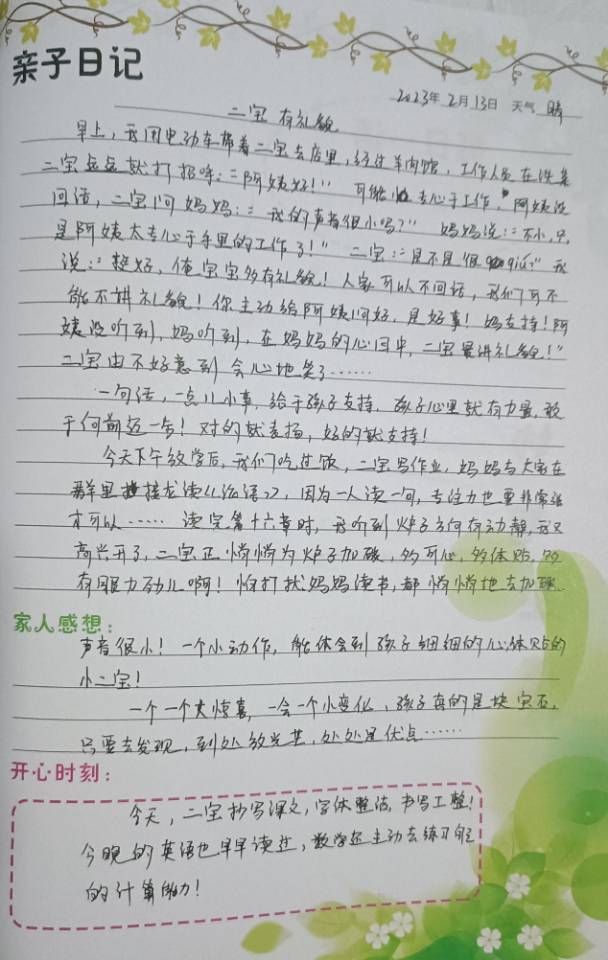 亲子日记
2023年 2月 13日 天气 晴
二宝 有礼貌
早上，我用电动车带着二宝去店里，经过羊肉馆，工作人员在洗菜
二宝远远就打招呼："阿姨好！" 可能 专心于工作，阿姨没
回话，二宝问妈妈："我的声音很小吗？" 妈妈说："不小，只
是阿姨太专心于手里的工作了！" 二宝："是不是很qiú？" 我
说："挺好，俺宝宝多有礼貌！人家可以不回话，我们可不
能不讲礼貌！你主动给阿姨问好，是好事！妈支持！阿
姨没听到，妈听到，在妈妈的心目中，二宝最讲礼貌！"
二宝由不好意到会心地笑了……
一句话，一点儿小事，给于孩子支持，孩子心里就有力量，敢
于向前迈一步！对的就表扬，好的就支持！
今天下午放学后，我们吃过饭，二宝写作业，妈妈与大宝在
群里接龙读《论语》，因为一人读一句，专注力也要非常强
才可以……读完第十六章时，我听到炉子方向有动静，我又
高兴开了，二宝正悄悄为炉子加碳，多可心，多体贴，多
有眼力劲儿啊！怕打扰妈妈读书，都悄悄地去加碳
家人感想：
声音很小！一个小动作，能体会到孩子细细的心体贴的
小二宝！
一个一个大惊喜，一会一个小变化，孩子真的是块宝石，
只要去发现，到处放光芒，处处是优点……
开心时刻：
今天，二宝抄写课文，字体整洁，书写工整！
今晚的英语也早早读过，数学还主动去练习自己
的计算能力！